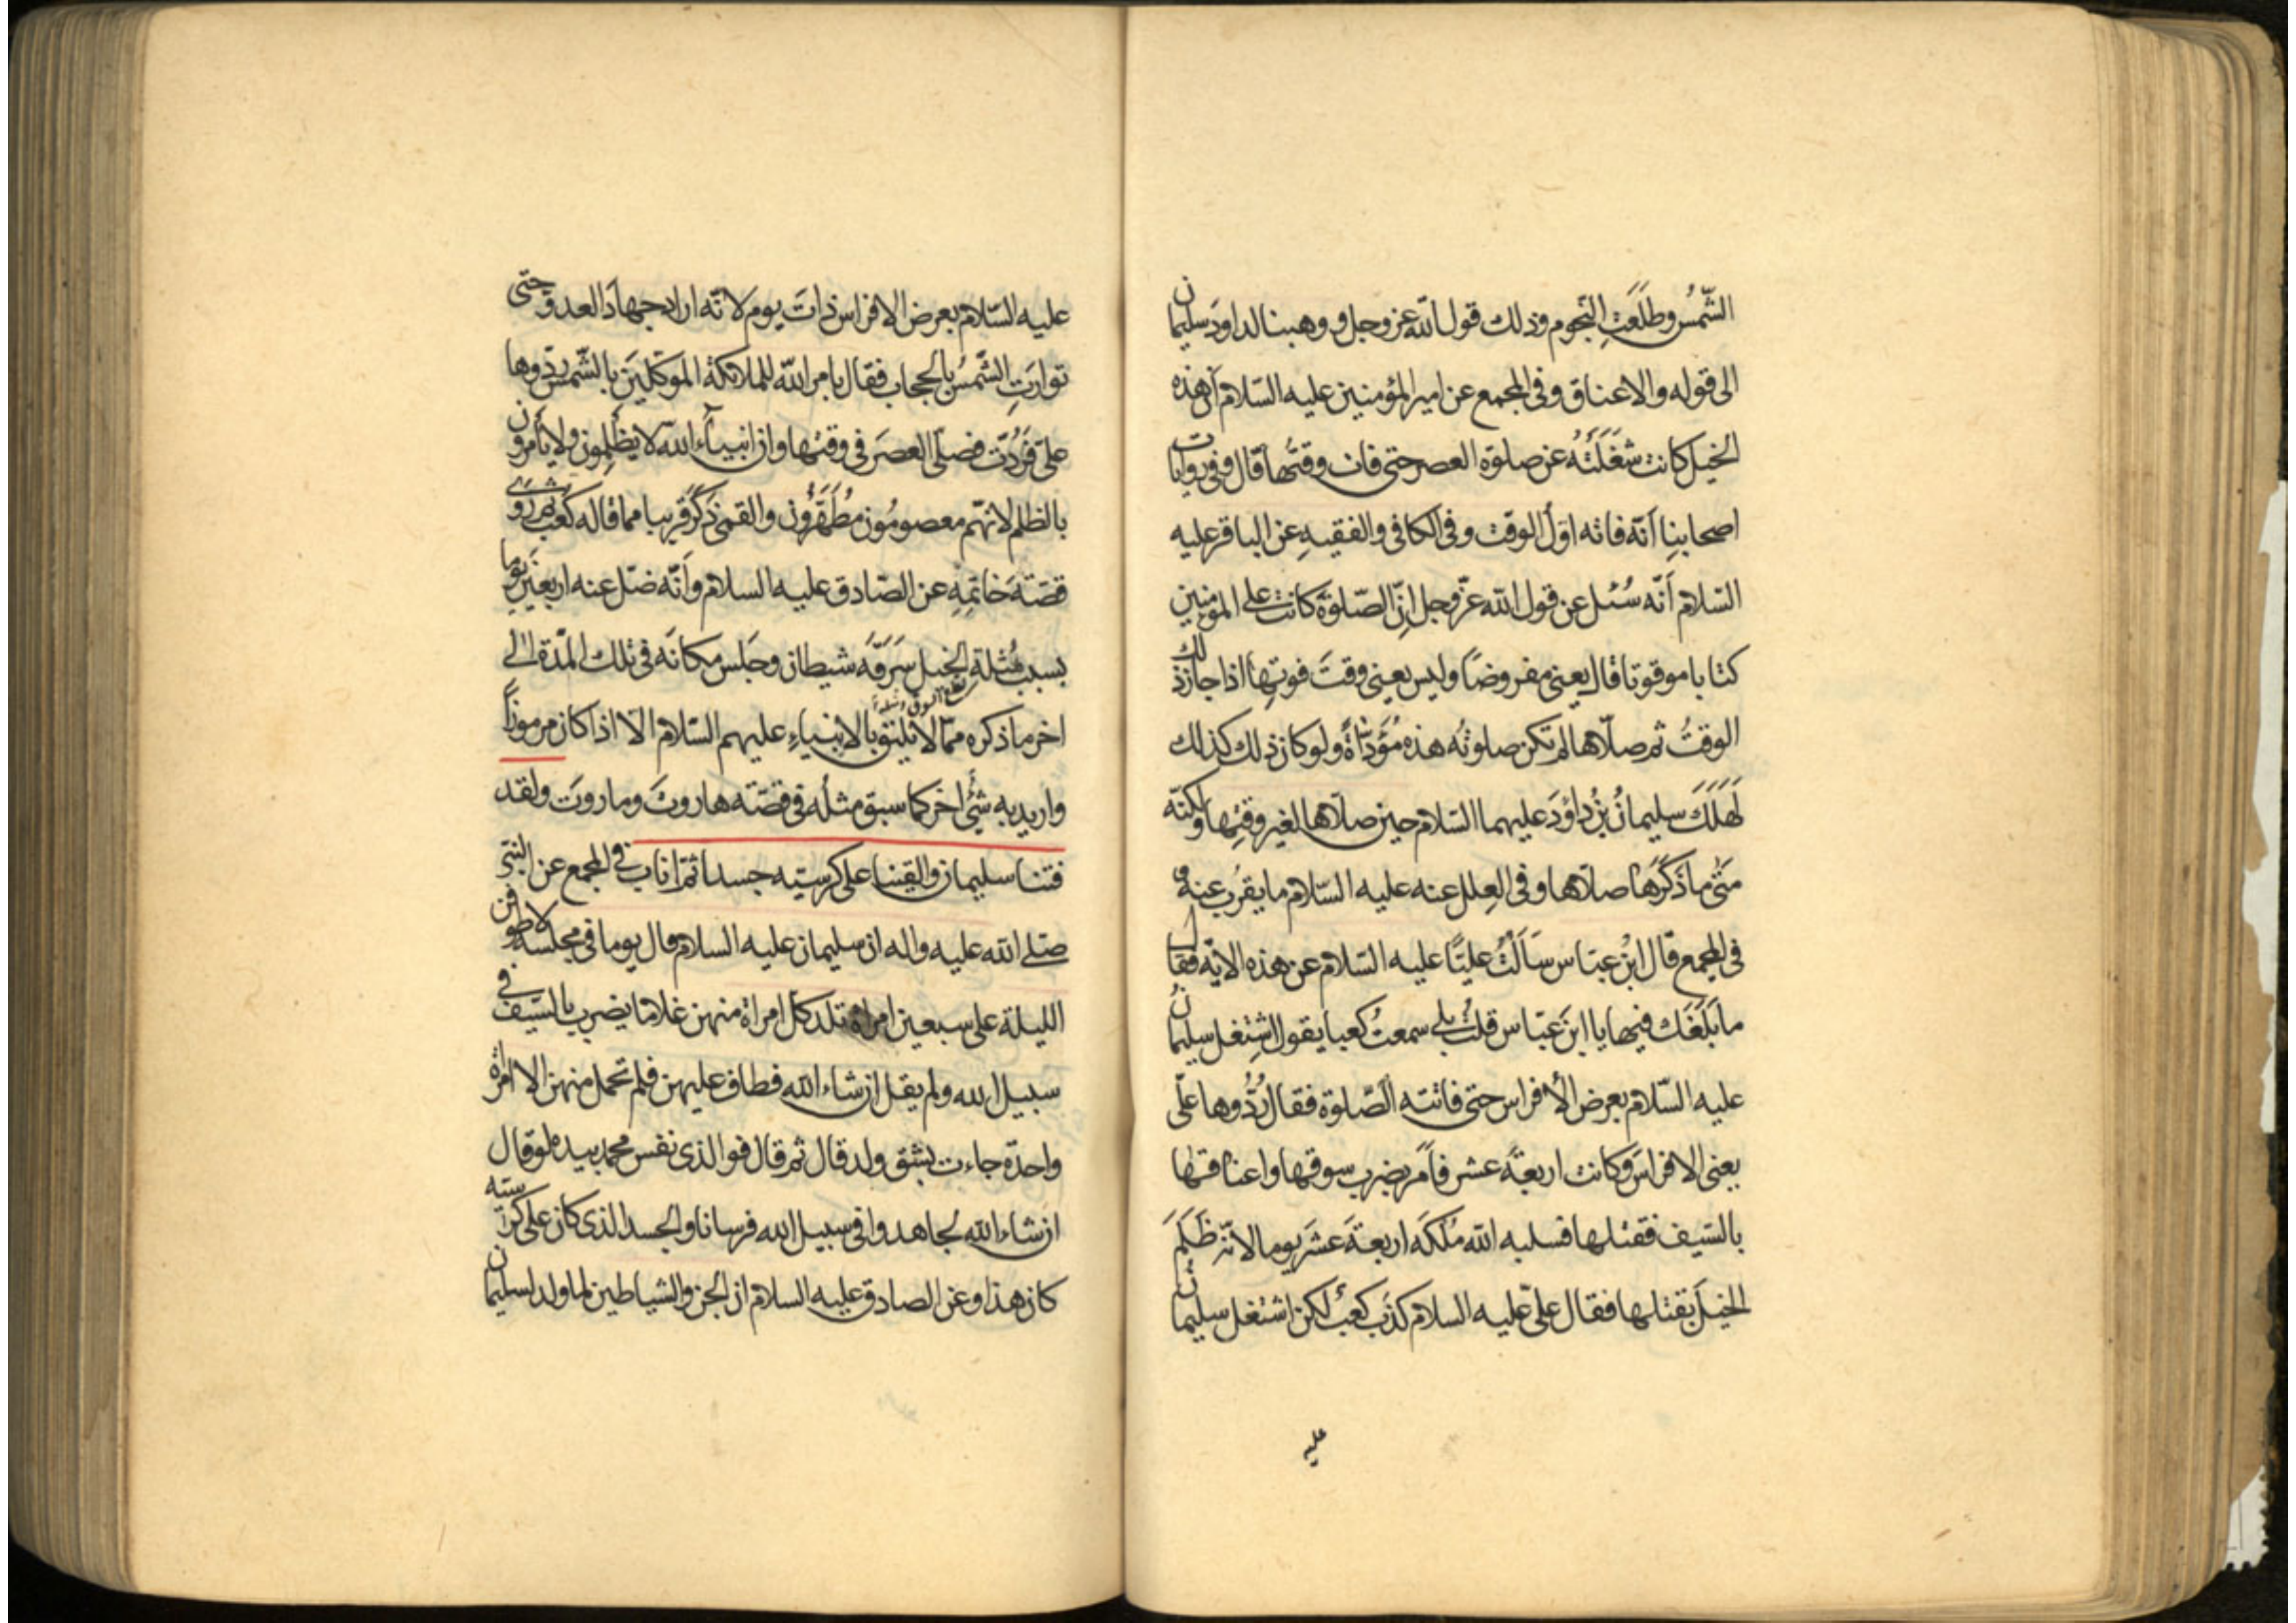 الشّمسُ وطَلَعَتِ النّجوم وذلك قول الله عز وجل ووهبنا لداود سليمان
الى قوله والاعناق وفى المجمع عن امير المؤمنين عليه السّلام ان هذه
الخيل كانت شَغَلَتْهُ عن صلوة العصر حتى فات وقتها قال وفى روايات
اصحابنا انّه فاته اوّل الوقت وفى الكافى والفقيهِ عن الباقر عليه
السّلام أنّه سُئل عن قول الله عزّ وجل انّ الصّلوة كانت على المؤمنين
كتابا موقوتا قال يعنى مفروضًا وليس يعنى وقتَ فوتِها اذا جاز ذلك
الوقتُ ثم صلّاها لم تكن صلوتُه هذه مُؤَدّاةً ولو كان ذلك كذلك
لَهَلَكَ سليمانُ بنُ داؤدَ عليهما السّلام حين صلّاها لغير وقتها ولكنّه
متى ما ذَكَرَها صلّاها وفى العِلل عنه عليه السّلام ما يقرُب عنه و
فى المجمع قال ابنُ عبّاس سَاَلْتُ عليًّا عليه السّلام عن هذه الايّة فقال
ما بَلَغَك فيها يا ابنَ عبّاس قلتُ بلى سمعتُ كعبا يقول اشتغل سليمانُ
عليه السّلام بعرض الأفراس حتى فاتته الصّلوة فقال رُدُّوها علَى
يعنى الافراسَ وكانت اربعةَ عشر فأمر بضرب سوقها واعناقها
بالسّيف فقتلها فسلبه الله مُلكَه اربعةَ عشَر يوما لانّه ظَلَمَ
الخيلَ بقتلها فقال علىّ عليه السلام كذب كعبٌ لكن اشتغل سليمان
عليه
عليه السّلام بعرض الافراس ذاتَ يوم لانّه اراد جهادَ العدو حتى
توارَتِ الشّمسُ بالحجاب فقال بامر الله للملائكة الموكّلين بالشّمس ردّوها
علىّ فَرُدّت فصلّى العصرَ فى وقتها وان انبياءَ الله لا يَظْلِمون ولا يأمرون
بالظلم لانّهم معصومُون مُطَهَّرُون والقمى ذَكَرَ قريبا مما قاله كعب ثم روى
قصّةَ خاتَمِهِ عن الصّادق عليه السلام وأنّه ضلّ عنه اربعين يوما
بسبب مُثلة الخيل سَرَقَه شيطان وجَلس مكانَه فى تلك المدّة الى
اخر ما ذكره ممّا لا تليق بالانبياءِ عليهم السّلام الا اذا كان مرموزًا
واريد به شئٌ اخر كما سبق مثلُه فى قصّته هاروتَ وماروتَ ولقد
فتنا سليمان والقينا على كرسيّه جسدا ثمّ اناب فى المجمع عن النبىّ
صلّى الله عليه واله ان سليمان عليه السلام قال يوما فى مجلسه لاطوفن
الليلة على سبعين امراة تلد كلّ امراة منهن غلاما يضرب بالسّيف فى
سبيل الله ولم يقل ان شاء الله فطاف عليهن فلم تحمل منهن الا امراة
واحدة جاءت بشق ولد قال ثم قال فوالذى نفس محمد بيده لو قال
ان شاء الله لجاهدوا فى سبيل الله فرسانا والجسد الذى كان على كرسيّه
كان هذا وعن الصادق عليه السلام ان الجن والشياطين لما ولد لسليمان